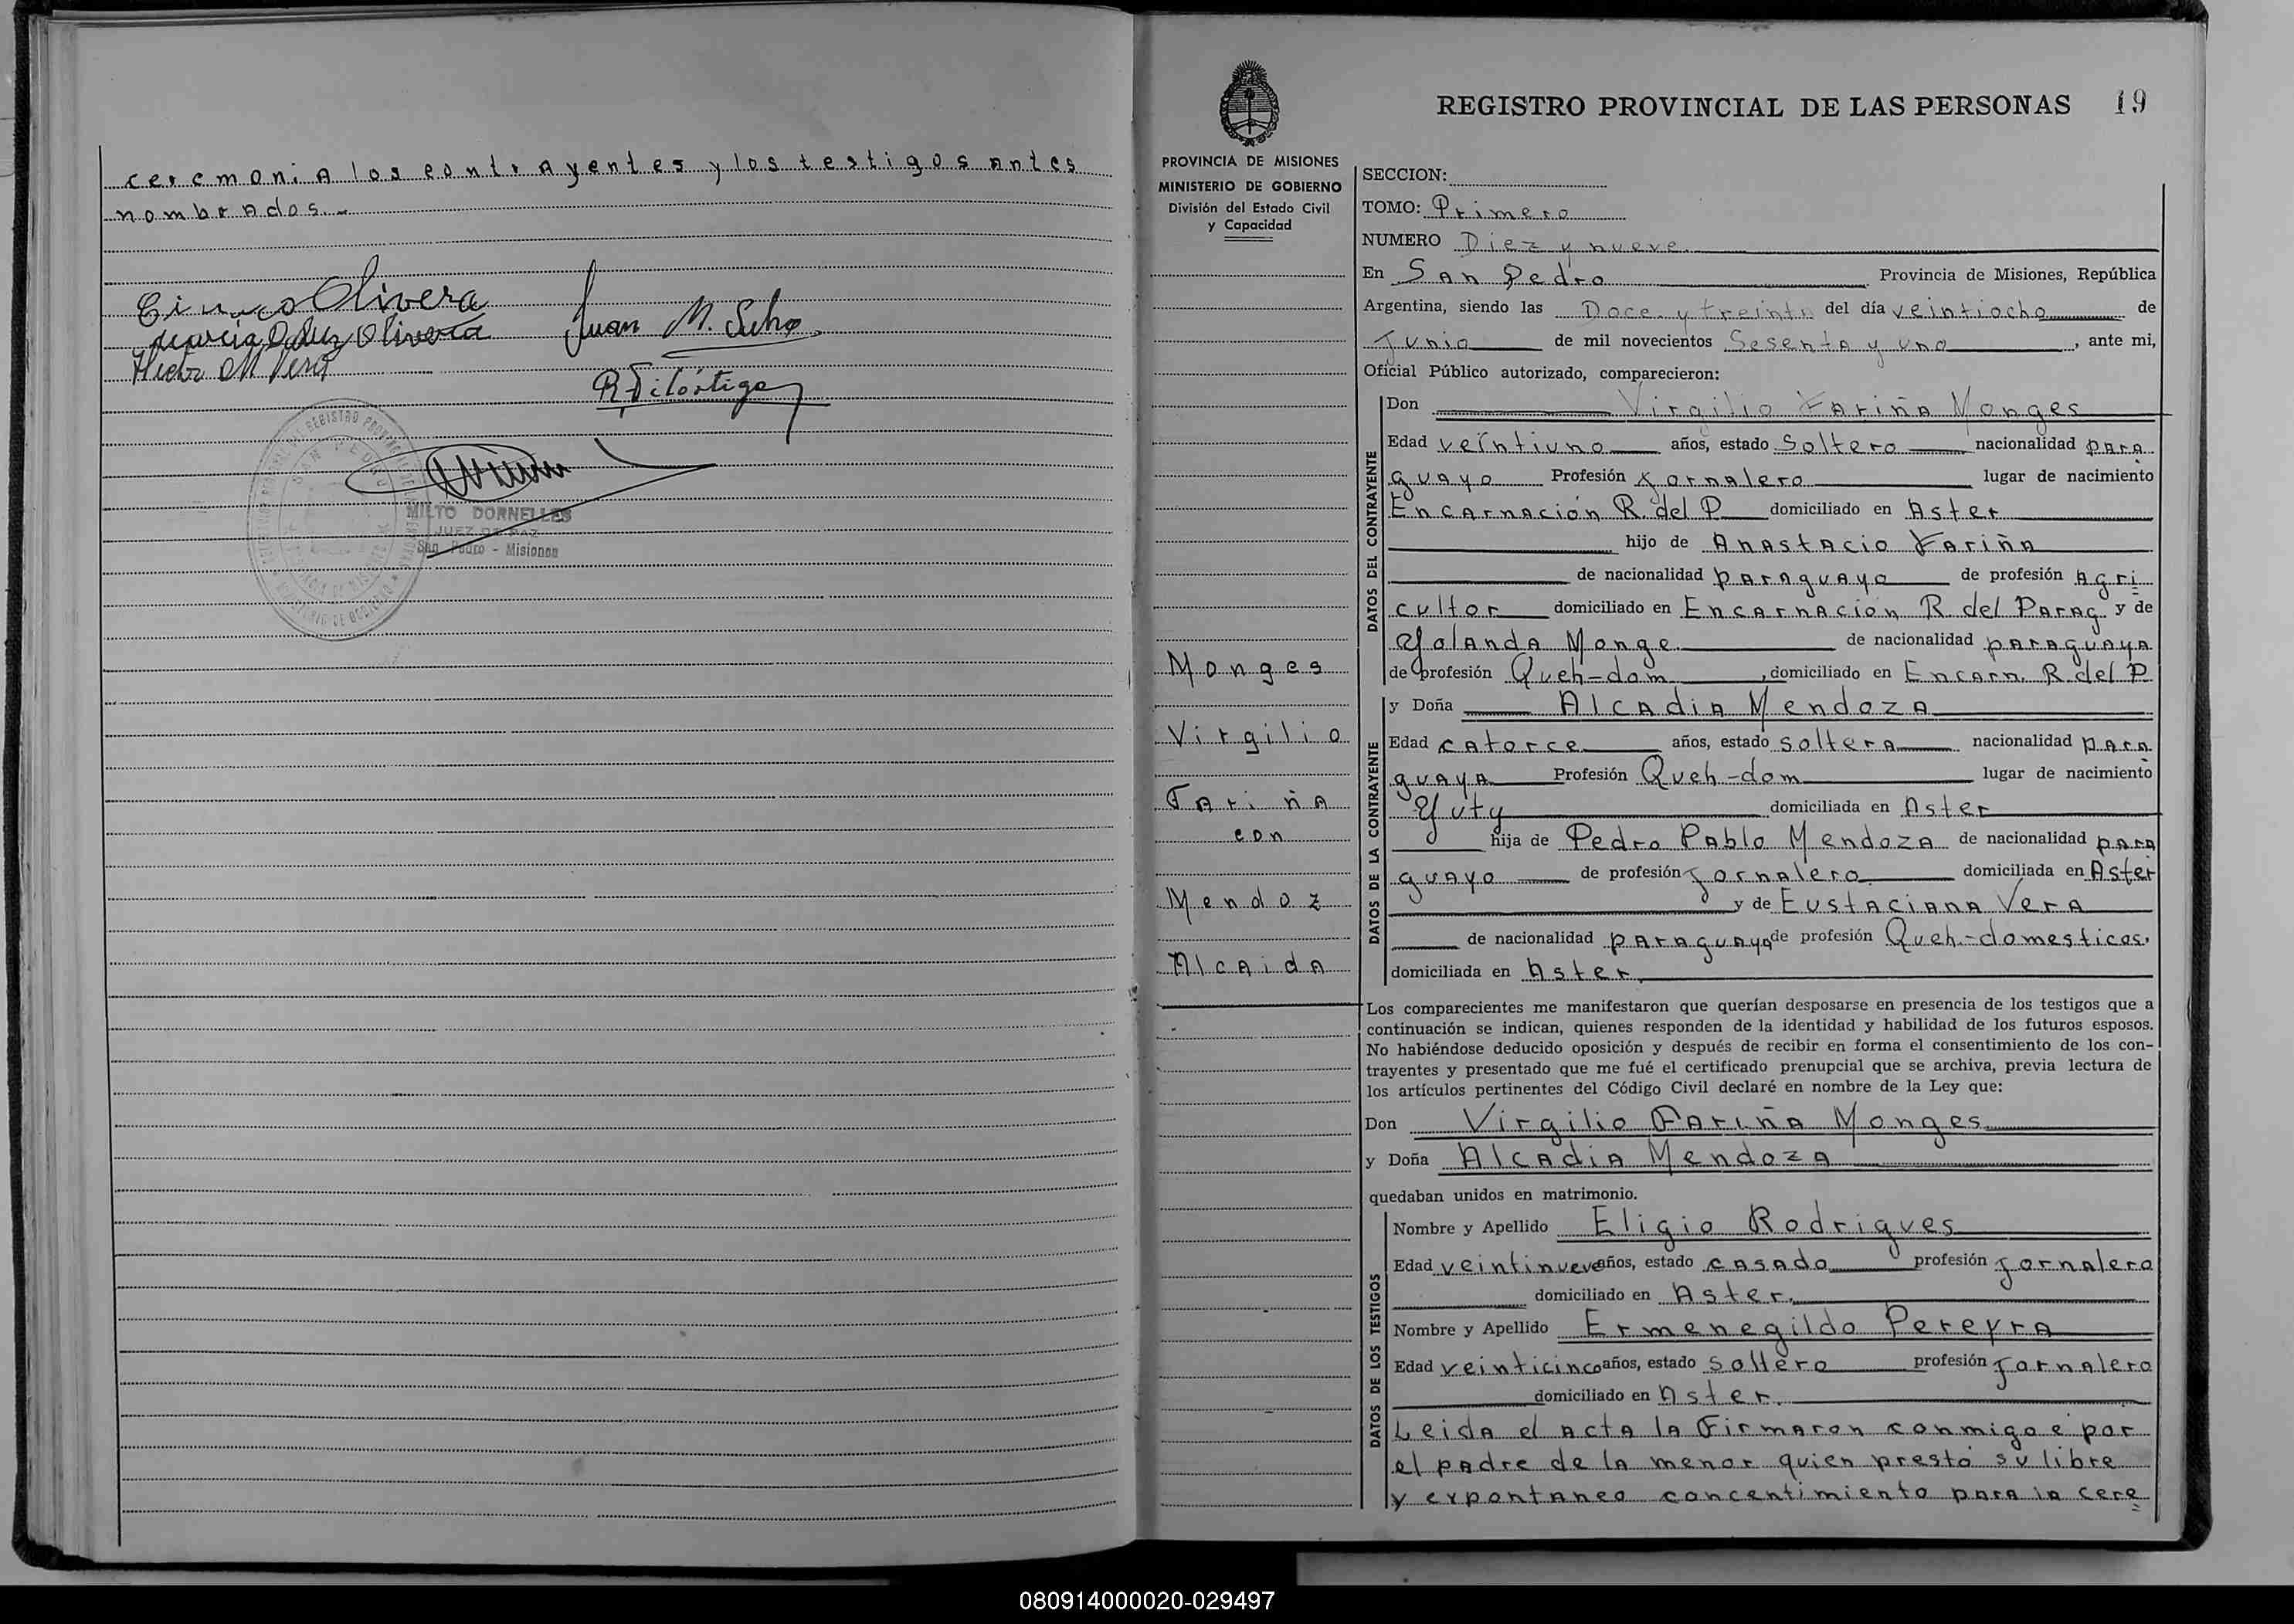 ceremonia los contrayentes y los testigos antes
nombrados.-
Olivera
Olivera
Juan M.
Vera
MILTO DORNELLES
JUEZ DE PAZ
San Pedro - Misiones
REGISTRO PROVINCIAL DE LAS PERSONAS 19
PROVINCIA DE MISIONES
MINISTERIO DE GOBIERNO
División del Estado Civil
y Capacidad
Monges
Virgilio
Fariña
con
Mendoz
Alcaida
SECCION:
TOMO: Primero
NUMERO Diez y nueve
En San Pedro Provincia de Misiones, República
Argentina, siendo las Doce y treinta del día veintiocho de
Junio de mil novecientos Sesenta y uno, ante mi,
Oficial Público autorizado, comparecieron:
DATOS DEL CONTRAYENTE
Don Virgilio Fariña Monges
Edad veintiuno años, estado Soltero nacionalidad para
guayo Profesión Jornalero lugar de nacimiento
Encarnación R. del P domiciliado en Aster
hijo de Anastacio Fariña
de nacionalidad paraguayo de profesión Agri
cultor domiciliado en Encarnación R. del Parag y de
Yolanda Monge de nacionalidad paraguaya
de profesión Queh-dom, domiciliado en Encarn. R. del P
DATOS DE LA CONTRAYENTE
y Doña Alcadia Mendoza
Edad catorce años, estado soltera nacionalidad para
guaya Profesión Queh-dom lugar de nacimiento
Yuty domiciliada en Aster
hija de Pedro Pablo Mendoza de nacionalidad para
guayo de profesión Jornalero domiciliada en Aster
y de Eustaciana Vera
de nacionalidad paraguaya de profesión Queh-domesticos.
domiciliada en Aster
Los comparecientes me manifestaron que querían desposarse en presencia de los testigos que a
continuación se indican, quienes responden de la identidad y habilidad de los futuros esposos.
No habiéndose deducido oposición y después de recibir en forma el consentimiento de los con-
trayentes y presentado que me fué el certificado prenupcial que se archiva, previa lectura de
los artículos pertinentes del Código Civil declaré en nombre de la Ley que:
Don Virgilio Fariña Monges
y Doña Alcadia Mendoza
quedaban unidos en matrimonio.
DATOS DE LOS TESTIGOS
Nombre y Apellido Eligio Rodrigues
Edad veintinueve años, estado casado profesión Jornalero
domiciliado en Aster.
Nombre y Apellido Ermenegildo Pereyra
Edad veinticinco años, estado soltero profesión Jornalero
domiciliado en Aster.
Leida el acta la Firmaron conmigo é por
el padre de la menor quien prestó su libre
y expontaneo concentimiento para la cere
080914000020-029497